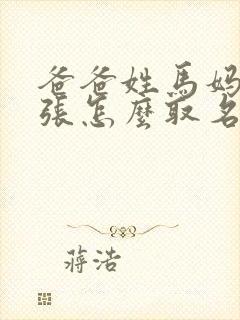 爸爸姓馬媽
張怎麼取名
蔣浩